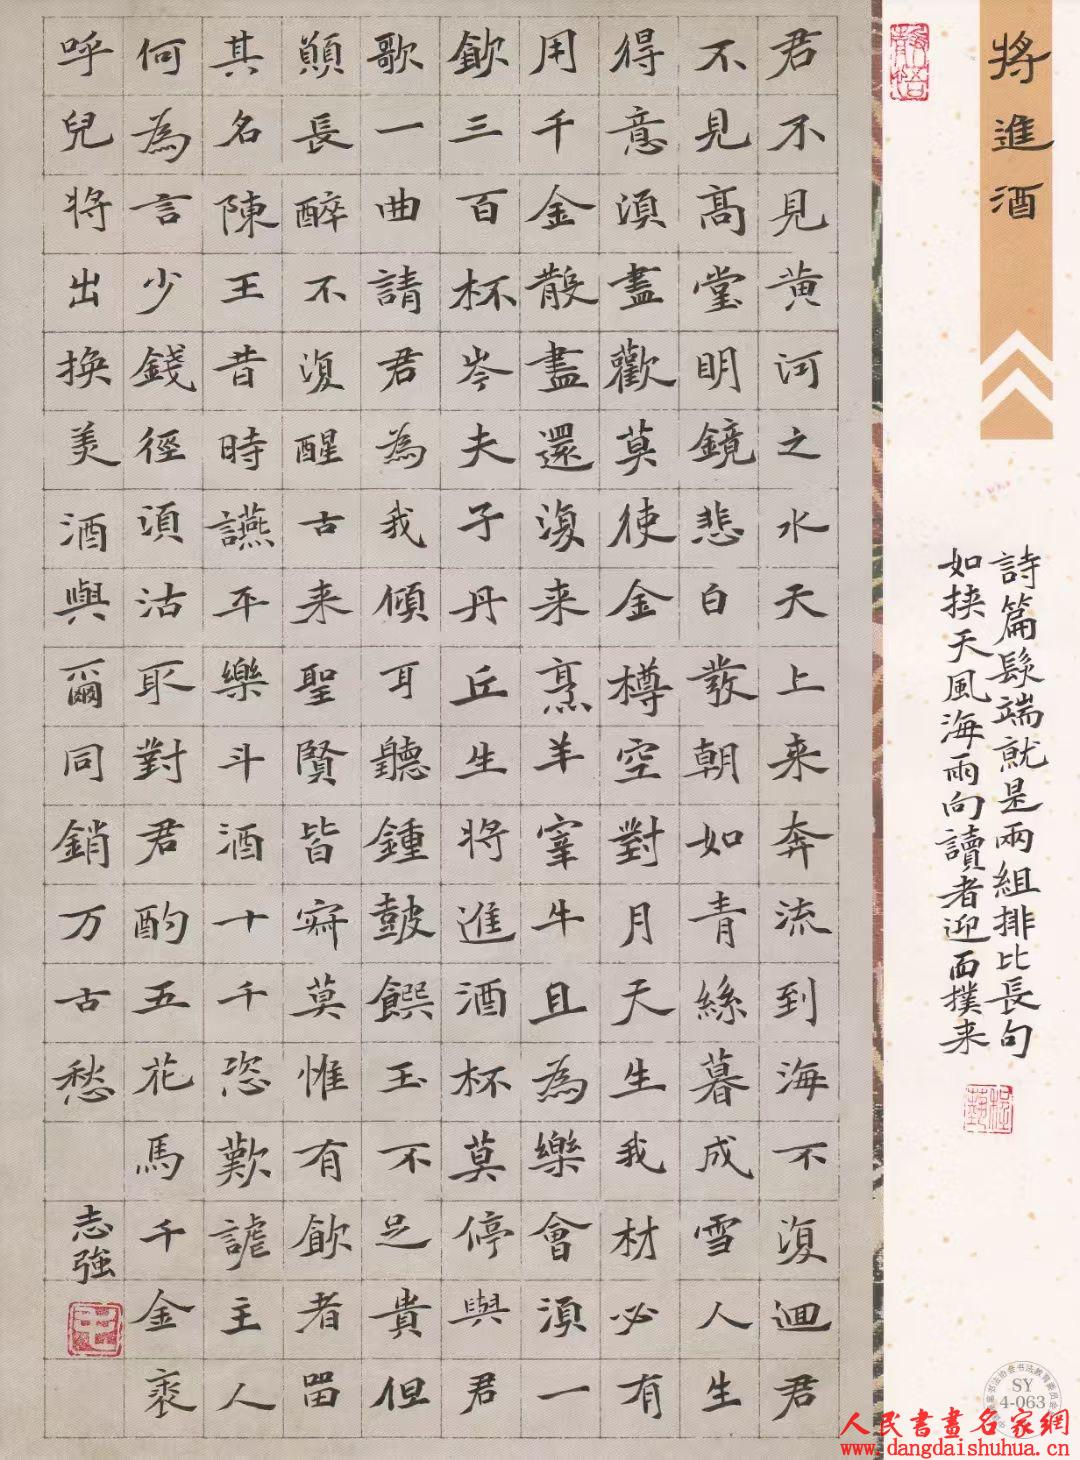 將進酒
詩篇髮端就是兩組排比長句
如挟天風海雨向讀者迎面撲来
君不見黄河之水天上来奔流到海不復迴君
不見高堂明鏡悲白發朝如青絲暮成雪人生
得意須盡歡莫使金樽空對月天生我材必有
用千金散盡還復来烹羊宰牛且為樂會須一
飲三百杯岑夫子丹丘生將進酒杯莫停與君
歌一曲請君為我傾耳聽鍾鼓饌玉不足貴但
願長醉不復醒古来聖賢皆寂莫惟有飲者留
其名陳王昔時讌平樂斗酒十千恣歡謔主人
何為言少錢徑須沽取對君酌五花馬千金裘
呼兒將出換美酒與爾同銷万古愁
志強
SY
4-063
人民書畫名家網
www.dangdaishuhua.cn